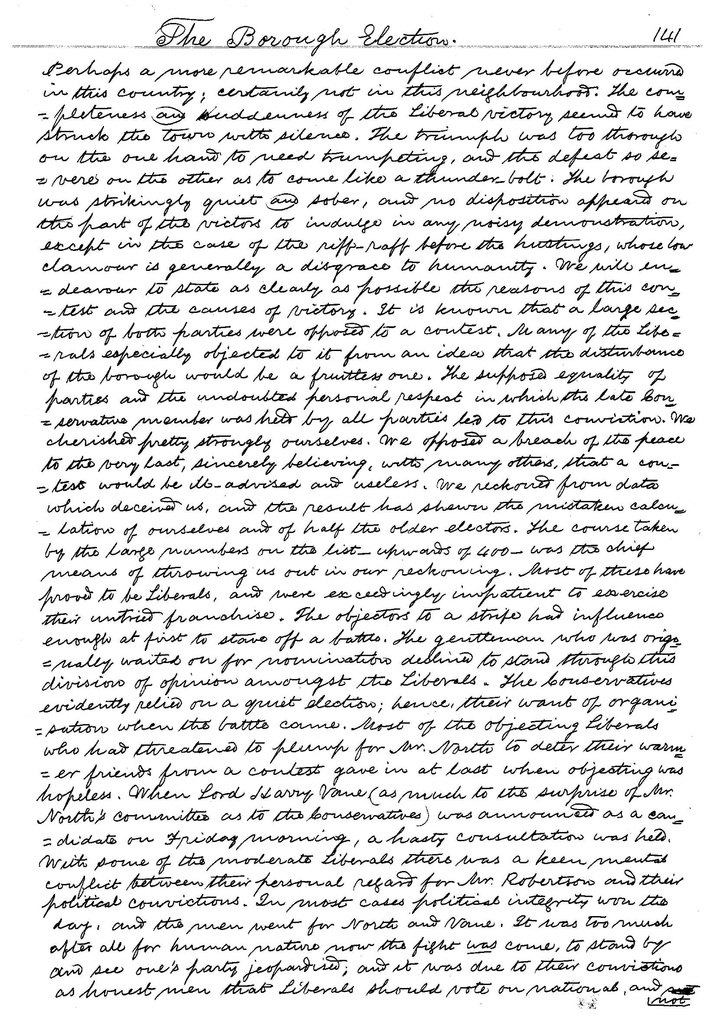 The Borough Election. 141
Perhaps a more remarkable conflict never before occurred
in this country; certainly not in this neighbourhood. The com-
=pleteness and suddenness of the Liberal victory seemed to have
struck the town with silence. The triumph was too thorough
on the one hand to need trumpeting, and the defeat so se=
=vere on the other as to come like a thunder-bolt. The borough
was strikingly quiet and sober, and no disposition appeared on
the part of the victors to indulge in any noisy demonstration,
except in the case of the riff-raff before the hustings, whose low
clamour is generally a disgrace to humanity. We will en=
=deavour to state as clearly as possible the reasons of this con=
=test and the causes of victory. It is known that a large sec=
=tion of both parties were opposed to a contest. Many of the Libe=
=rals especially objected to it from an idea that the disturbance
of the borough would be a fruitless one. The supposed equality of
parties and the undoubted personal respect in which the late Con=
=servative member was held by all parties led to this conviction. We
cherished pretty strongly ourselves. We opposed a breach of the peace
to the very last, sincerely believing, with many others, that a con=
=test would be ill-advised and useless. We reckoned from data
which deceived us, and the result has shewn the mistaken calcu=
=lation of ourselves and of half the older electors. The course taken
by the large numbers on the list - upwards of 400 - was the chief
means of throwing us out in our reckoning. Most of these have
proved to be Liberals, and were exceedingly impatient to exercise
their untried franchise. The objectors to a strife had influence
enough at first to stave off a battle. The gentleman who was origi=
=nally waited on for nomination declined to stand through this
division of opinion amongst the Liberals. The Conservatives
evidently relied on a quiet election; hence, their want of organi=
=sation when the battle came. Most of the objecting Liberals
who had threatened to plump for Mr. North to deter their warm=
=er friends from a contest gave in at last when objecting was
hopeless. When Lord Harry Vane (as much to the surprise of Mr.
North's committee as to the Conservatives) was announced as a can=
=didate on Friday morning, a hasty consultation was held.
With some of the moderate Liberals there was a keen mental
conflict between their personal regard for Mr. Robertson and their
political convictions. In most cases political integrity won the
day, and the men went for North and Vane. It was too much
after all for human nature now the fight was come, to stand by
and see one's party jeopardised; and it was due to their convictions
as honest men that Liberals should vote on national, and
not